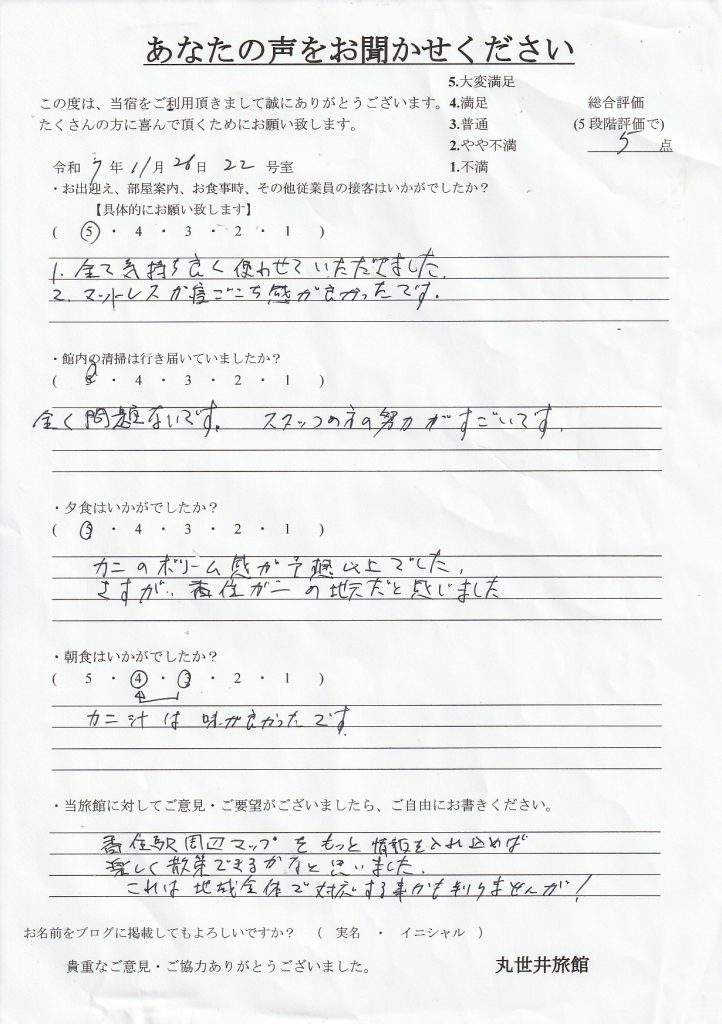 あなたの声をお聞かせください
この度は、当宿をご利用頂きまして誠にありがとうございます。
たくさんの方に喜んで頂くためにお願い致します。
5.大変満足
4.満足
3.普通
2.やや不満
1.不満
総合評価
(5段階評価で)
5 点
令和 7 年 11 月 26 日 22 号室
・お出迎え、部屋案内、お食事時、その他従業員の接客はいかがでしたか？
【具体的にお願い致します】
( 5 ・ 4 ・ 3 ・ 2 ・ 1 )
1. 全て気持ち良く使わせていただきました。
2. マットレスが寝ごこち感が良かったです。
・館内の清掃は行き届いていましたか？
( 5 ・ 4 ・ 3 ・ 2 ・ 1 )
全く問題ないです。 スタッフの方の努力がすごいです。
・夕食はいかがでしたか？
( 5 ・ 4 ・ 3 ・ 2 ・ 1 )
カニのボリーム感が予想以上でした。
さすが、香住ガニの地元だと感じました
・朝食はいかがでしたか？
( 5 ・ 4 ・ 3 ・ 2 ・ 1 )
カニ汁は味が良かったです。
・当旅館に対してご意見・ご要望がございましたら、ご自由にお書きください。
香住駅周辺マップをもっと情報を入れ込めば
楽しく散策できるかなと思いました。
これは地域全体で対応する事かも判りませんが！
お名前をブログに掲載してもよろしいですか？ ( 実名 ・ イニシャル )
貴重なご意見・ご協力ありがとうございました。
丸世井旅館